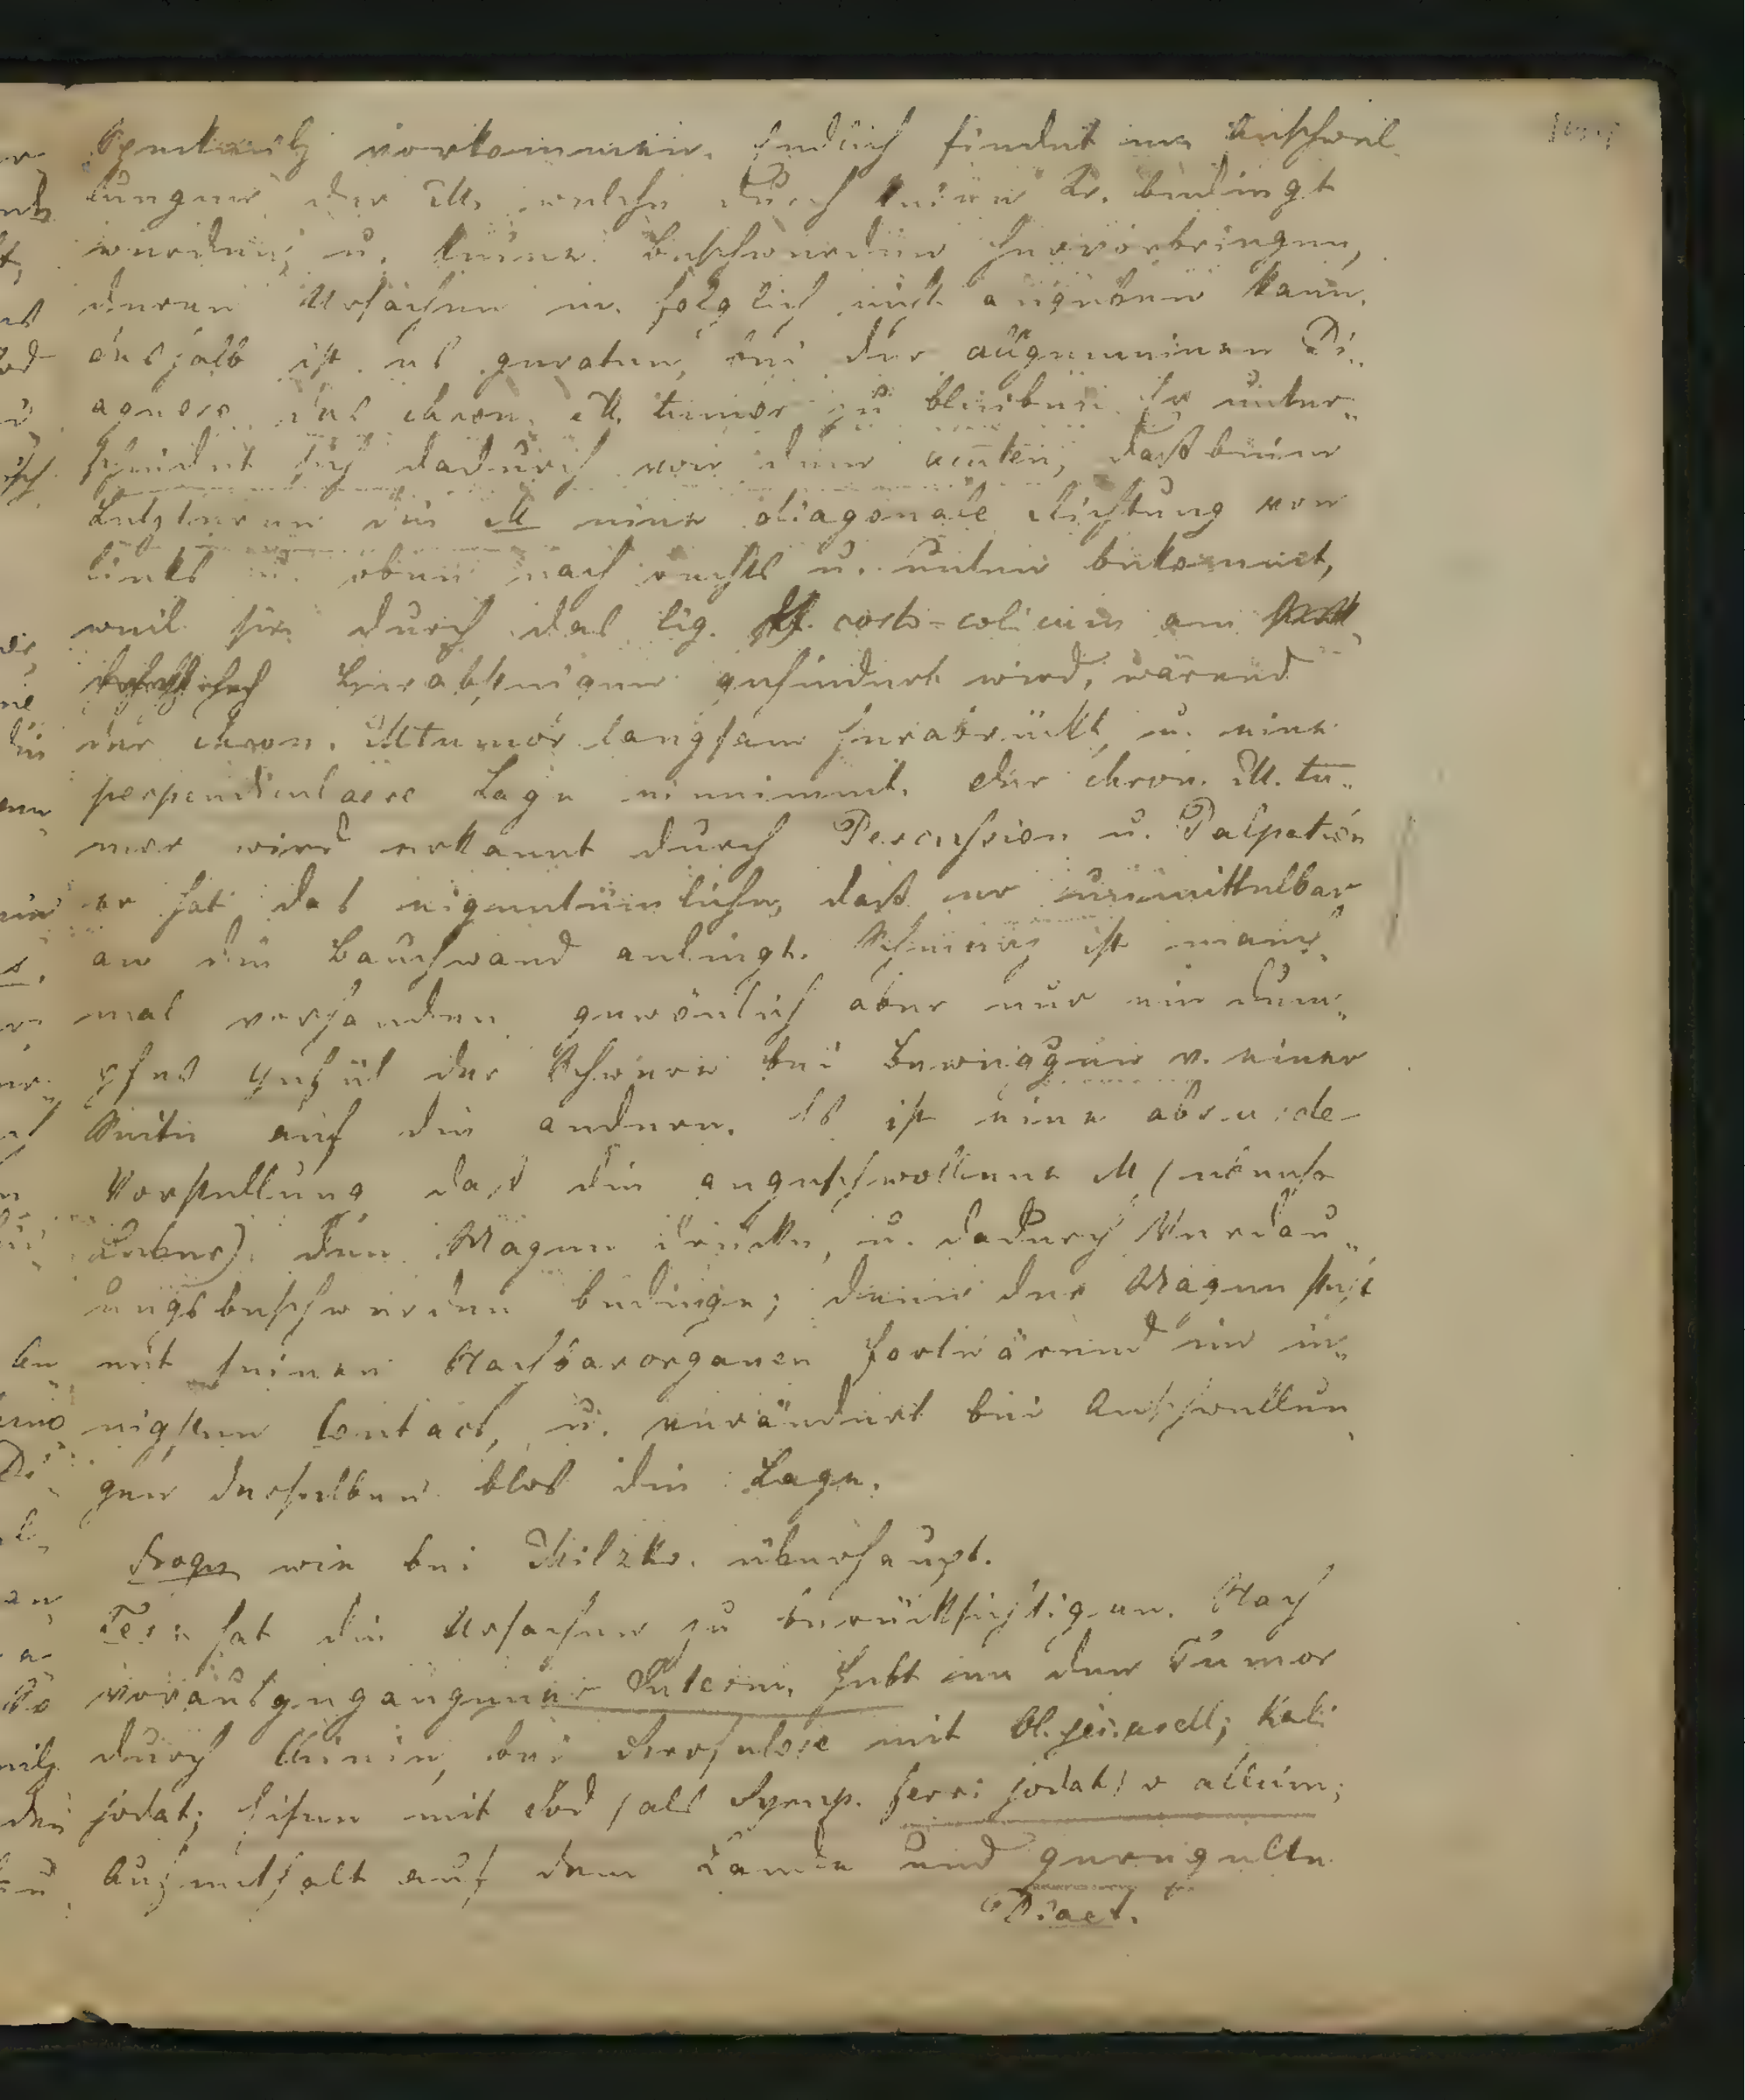 Speckmilz vorkommen. Endlich findet m. Anschwel-
lungen der M. welche durch keine Kr. bedingt
werden, u. keine Beschwerden hervorbringen,
deren Ursachen m. folglich nicht angeben kann.
deshalb ist es geraten, bei der allgemeinen Di-
agnose des chron. M. tumor zu bleiben. Er unter-
scheidet sich dadurch von dem acuten, daß beim
Letzteren die M eine diagonale Richtung von
links u. oben nach rechts u. unten bekommt,
weil sie durch das lig. costo-colicum am
Herabsteigen gehindert wird, wärend
der chron. Mtumor langsam herabrückt u. eine
perpendiculaere Lage einnimmt. Der chron. M. tu-
mor wird erkannt durch Percussion u. Palpation
er hat das eigentümliche, daß er unmittelbar
an die Bauchwand anliegt. Schmerz ist manch-
mal vorhanden gewönlich aber nur ein dum-
pfes Gefül der Schwere bei Bewegung v. einer
Seite auf die andere. Es ist eine absurde
Vorstellung das die angeschwollene M (
Leber) den Magen drücke, u. dadurch Verdau-
ungsbeschwerden bedinge; denn der Magen steht
mit seinen Nachbarorganen fortwärend im in-
nigsten Contact, u. verändert bei Anschwellun-
gen derselben blos die Lage.
Progn wie bei Milzkr. überhaupt.
Ter. hat die Ursachen zu berücksichtigen. Nach
vorausgegangener Interm. hebt m. den Tumor
durch Chinin, bei Scrofulose mit Ol. jec. aselli; Kali
jodat; Eisen mit Jod (als Syrup. ferri jodat) v allium;
Aufenthalt auf dem Lande und geregelte
Diaet.